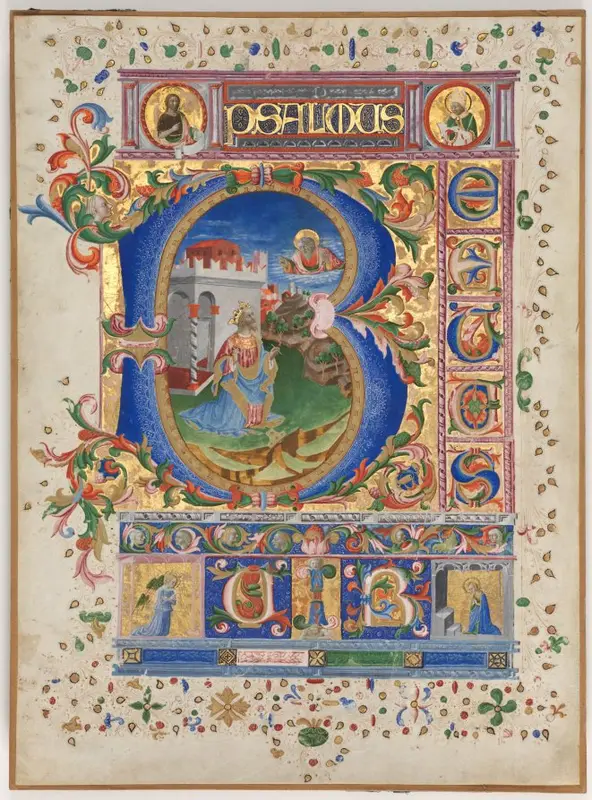 PSALMUS
B
E
A
T
U
S
UIR